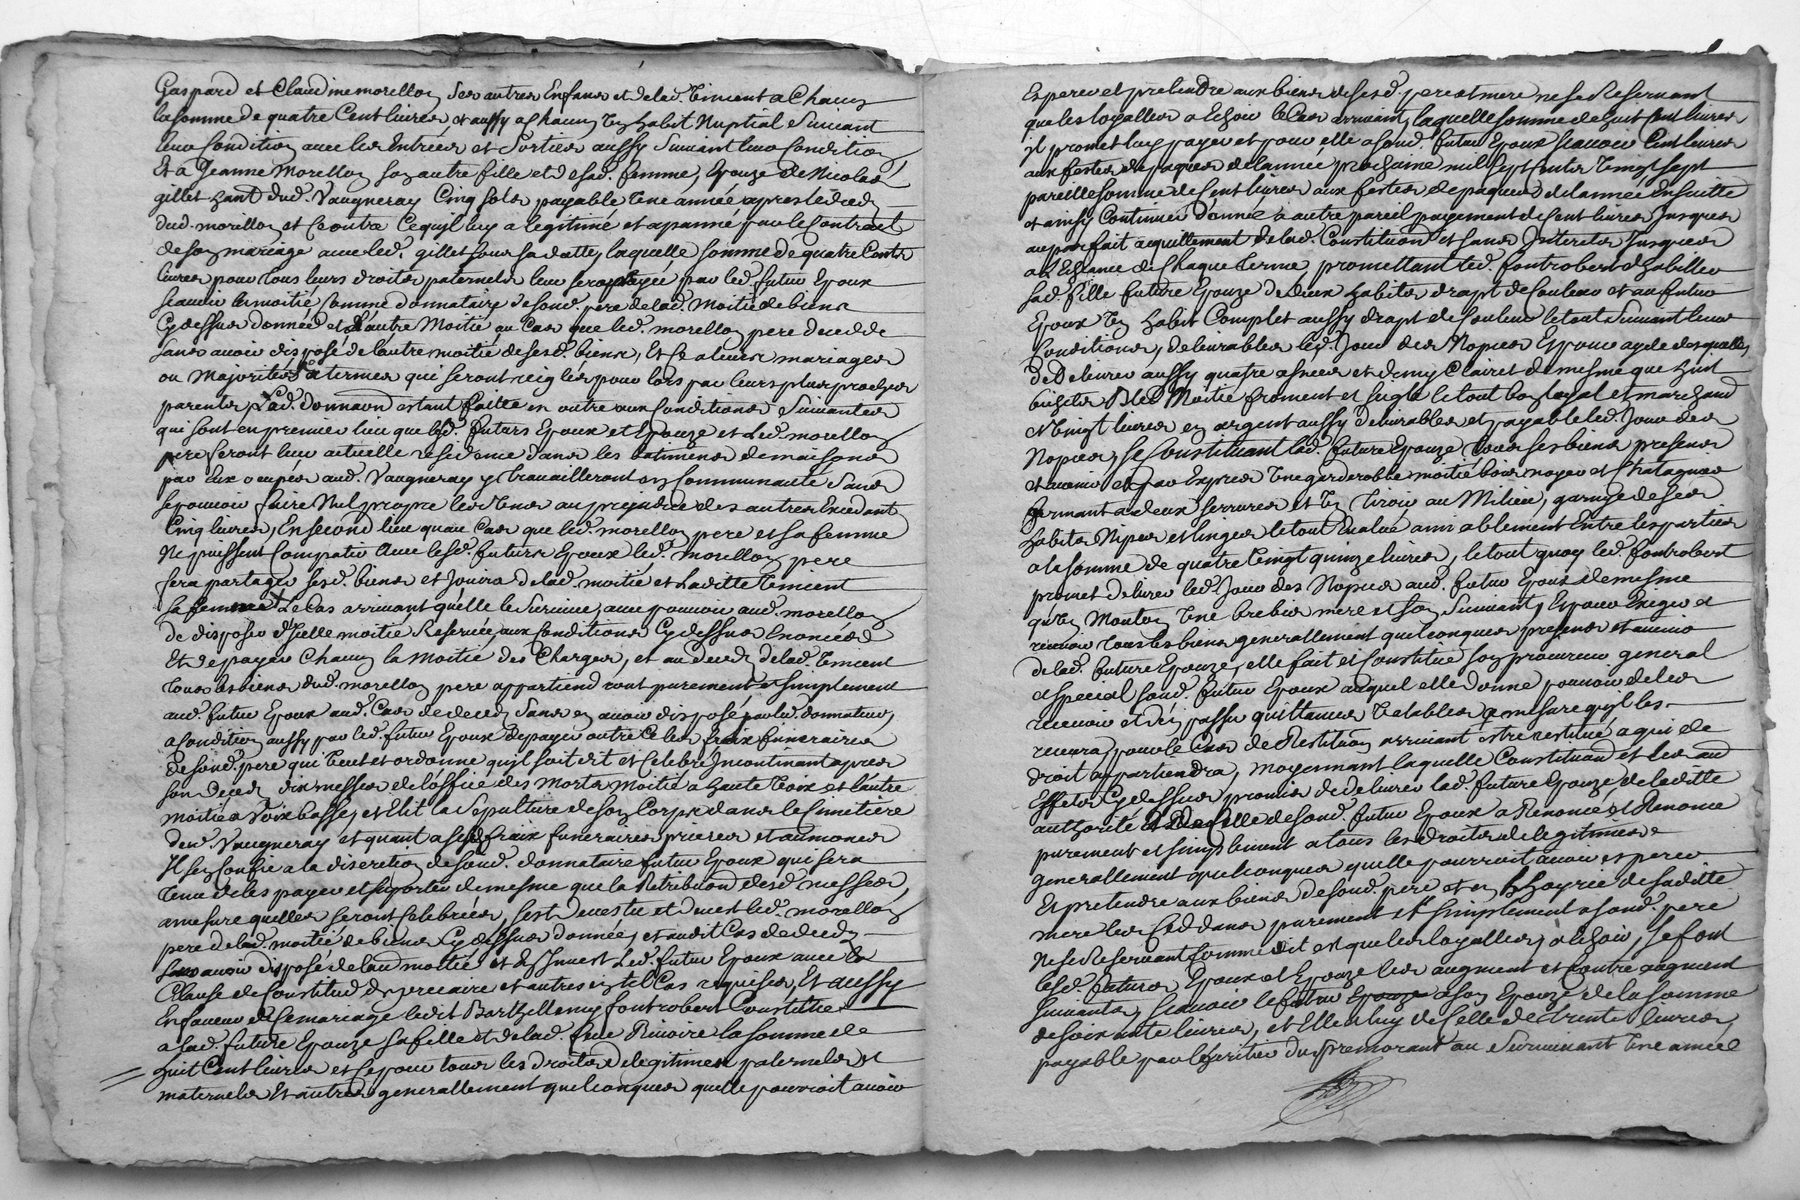 Gaspard et Claudine morellon ses autres Enfans et de lad. Timent a Chacun
la somme de quatre Cent livres et aussy a chacun un habit Nuptial suivant
leur Condition avec les Entrées et Sorties aussy suivant leur Condition
Et a Jeanne Morellon son autre fille et de sad. femme, Epouze de Nicolas
gillet hant dud. Vaugneray Cinq sols, payable Une année apres le deceds
dud. morellon et Ce outre Ce qu'il luy a legitimé et apanné par le Contract
de son mariage avec led. gillet sous sa datte, laquelle somme de quatre Cents
livres pour tous leurs droits paternels leur sera payée par led. futur Epoux
scavoir la moitié Comme donnataire de sond. pere de lad. Moitié de biens
Cy dessus donnée et l'autre Moitié au Cas que led. morellon pere decedde
sans avoir disposé de lautre moitié de sesd. biens, Et Ce a leurs mariages
ou Majorités a termes qui seront reiglés pour lors par leurs plus proches
parents, Lad. donnaon estant faitte en outre aux Conditions Suivantes
qui sont en premier lieu que lesd. futurs Epoux et Epouze et Led. morellon
pere feront leur actuelle residence dans les batimens de maisons
par Eux occupés aud. Vaugneray y travailleront en Communauté Sans
se pouvoir faire Nul propre les Uns au prejudice des autres Excedant
Cinq livres, En second lieu quau Cas que led. morellon pere et sa femme
Ne puissent Compatir Avec lesd. futurs Epoux led. Morellon pere
fera partager sesd. biens et Jouira de lad. moitié et Laditte Timent
sa femme Le Cas arrivant qu'elle le Survive, avec pouvoir aud. morellon
de disposer d'Icelle moitié Reservée aux Conditions Cy dessus Enoncées
Et de payer Chacun la Moitié des Charges, et au deceds de lad. Timent
tous les biens dud. morellon pere appartiendront purement et simplement
aud. futur Epoux aud. Cas de deceds Sans en avoir disposé par led. donnateur,
a Condition aussy par led. futur Epoux de payer outre Ce les fraix funeraires
de sond. pere qui Veut et ordonne qu'il soit dit et Celebré Incontinant apres
son deceds dix messes de l'office des Morts Moitié a haute Voix et l'autre
moitié a Voix basse, et Elit la Sepulture de son Corps dans le Cimetiere
dud. Vaugneray et quant a sesd. fraix funeraires prieres et aumones
Il sen Confie a la discretion de sond. donnataire futur Epoux qui sera
tenu de les payer et suporter de mesme que la Retribution desd. messes,
a mesure quelles seront Celebrées, sest devestu et devest led. morellon
pere de lad. moitié de biens Cy dessus donnée, et audit Cas de deceds
sans avoir disposé de laud moitié et En Invest Led. futur Epoux avec la
Clause de Constitud de precaire et autres en tel Cas requises, Et aussy
En faveur de Ce mariage ledit Barthellemy fontrobert Constitue
a lad. future Epouze sa fille et de lad. feue Rivoire la somme de
huit Cent livres et Ce pour tous les droits de legitimes paternels et
maternels Et autres generallement quelconques quelle pourroit avoir
Esperer et pretendre aux biens de sesd. pere et mere ne se Reservant
que les loyalles a lehoir le Cas arrivant, laquelle somme de huit Cent livres
il promet luy payer et pour elle a sond. futur Epoux scavoir Cent livres
aux festes de paques de lannée prochaine mil sept cents vingt sept
pareille somme de Cent livres aux festes de paques de lannée Ensuitte
et ainsy Continuer d'année a autre pareil payement de Cent livres Jusques
au parfait acquittement de lad. Constitution et sans Interets Jusques
a l'Echeance de Chaque terme, promettant led. fontrobert d'habiller
sad. fille future Epouze de deux habits drapt de Couleur et au futur
Epoux Un habit Complet aussy drapt de Couleur le tout Suivant leurs
Conditions, delivrables led. Jour des Nopces Epoux ayde desquelles
de Delivrer aussy quatre asnées et demy Clairet de mesme que huit
bichets Bled Moitié froment et seigle le tout bon loyal et marchand
et Vingt livres en argent aussy delivrables et payable led. Jour des
Nopces, se Constituant lad. future Epouze tous ses biens presens
et avenir et par Exprès Une garderobbe moitié bois noyer et Chatagner
fermant a deux serrures et Un tiroir au Milieu, garnye de ses
habits Nipes et linges le tout Evalué amiablement Entre les parties
a la somme de quatre vingt quinze livres, le tout quoy led. fontrobert
promet delivrer led. Jour des Nopces aud. futur Epoux de mesme
qu'un Mouton Une brebis mere et son Suivant, Et pour Exiger et
recevoir tous les biens generallement quelconques presens et avenir
de lad. future Epouze, elle fait et Constitue son procureur general
et special sond. futur Epoux auquel elle donne pouvoir de les
recevoir et d'en passer quittances Valables a mesure qu'il les
recevra pour le Cas de Restitution arrivant estre restitué a qui de
droit appartiendra, Moyennant laquelle Constitution et les aud
Effets Cy dessus promis de delivrer lad. future Epouze, de laditte
authorité et de Celle de sond. futur Epoux a Renoncé et Renonce
purement et simplement a tous les droits de legitimes
generallement quelconques quelle pourroit avoir esperer
Et pretendre aux biens de sond. pere et en hoyrie de saditte
mere les Ceddans purement et simplement a sond. pere
Ne se Reservant Comme dit est que les loyalles a lehoir, se font
lesd. futurs Epoux et Epouze les augment et Contre augment
suivants, scavoir le futur a son Epouze de la somme
de soixante livres, et Elle a luy de Celle de trente livres,
payable par lheritier du premourant au Survivant Une année